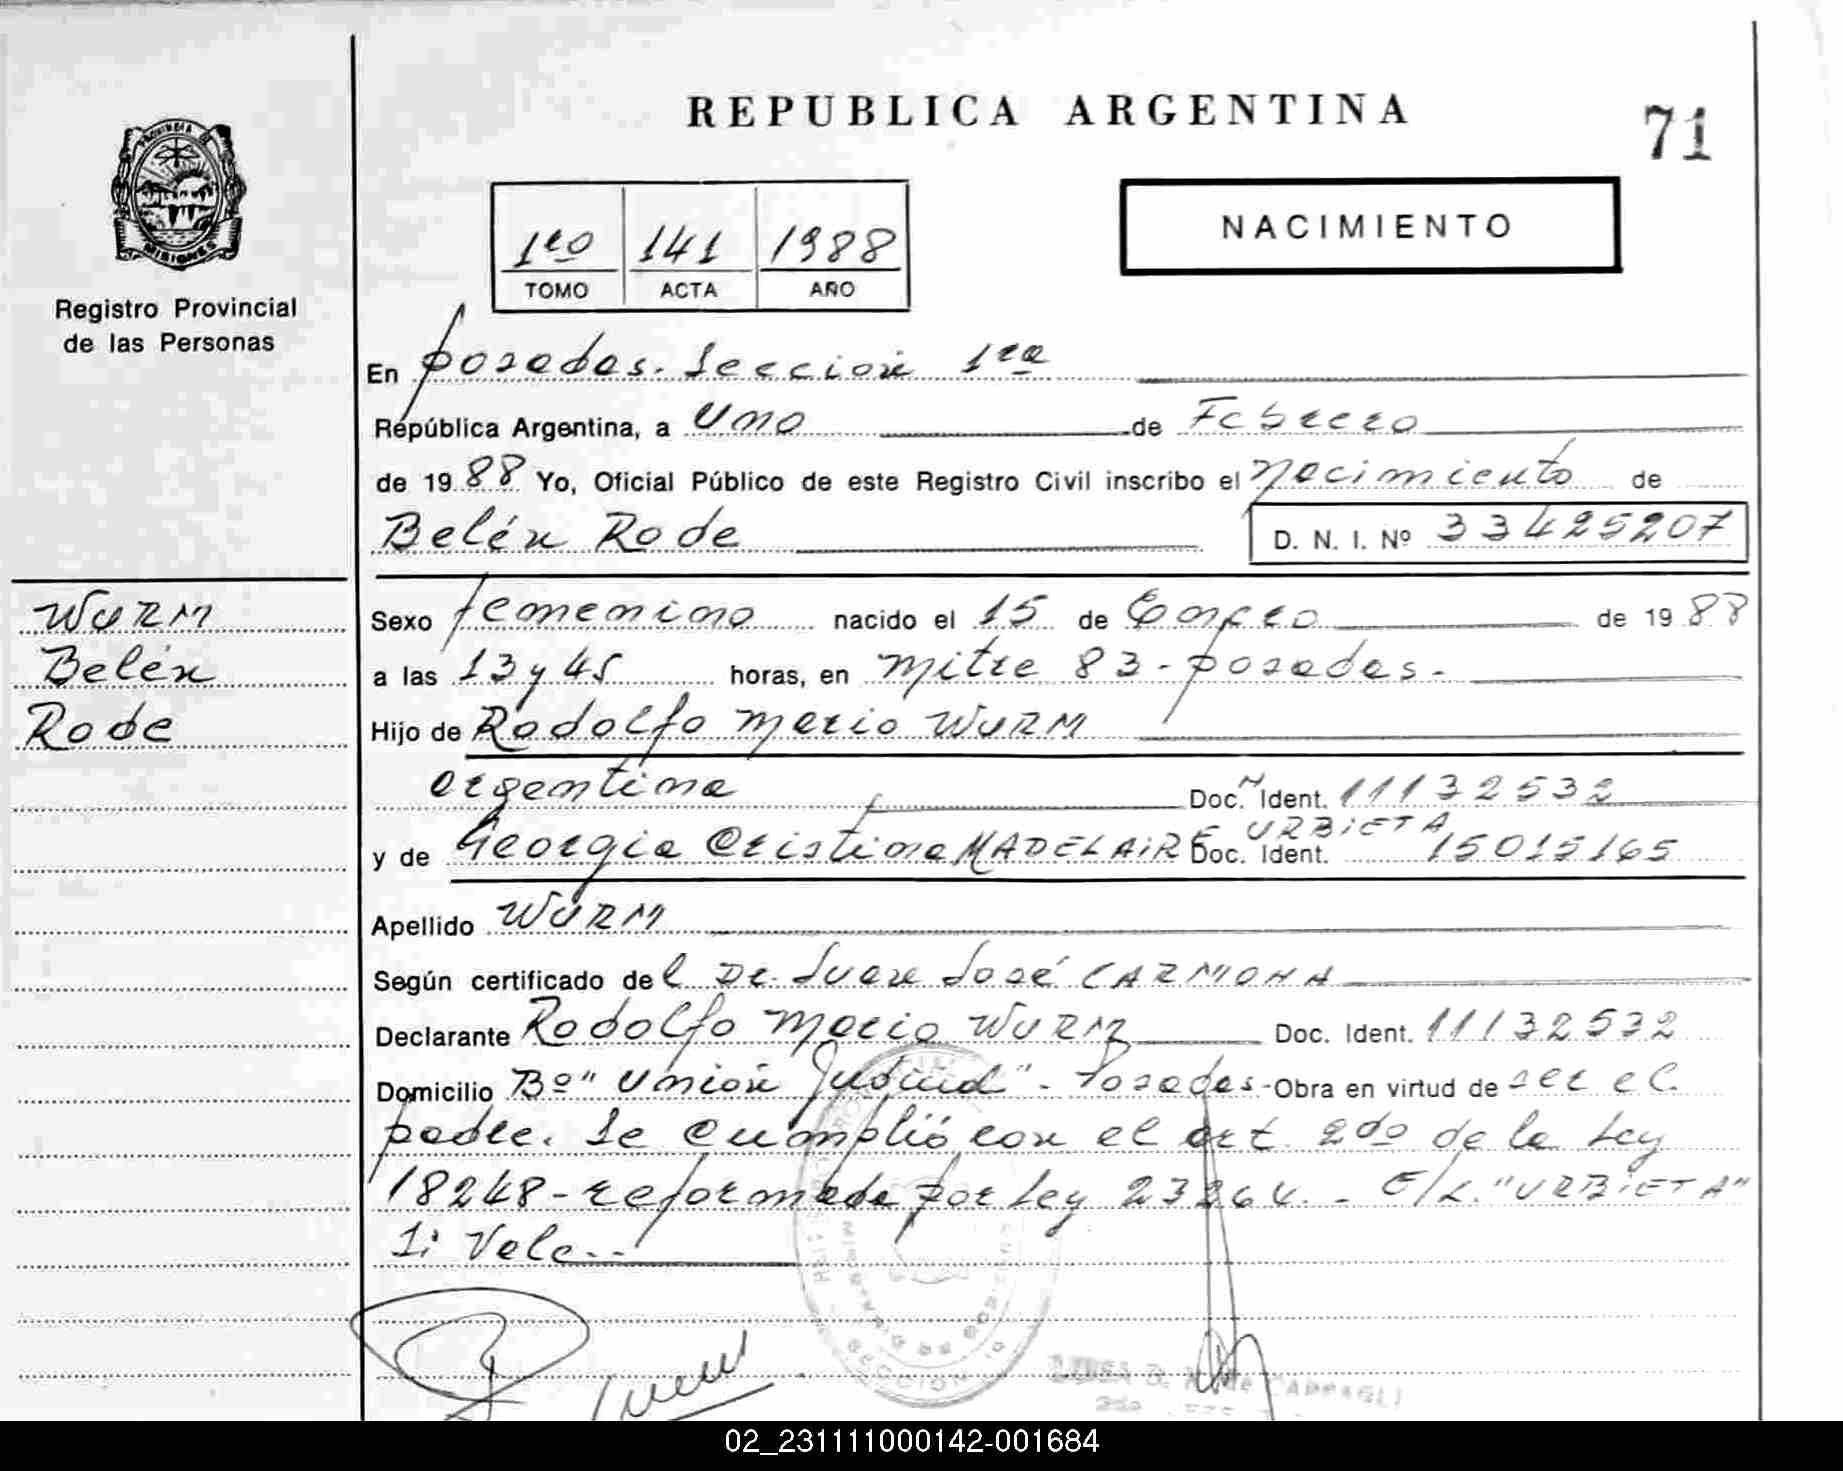 REPUBLICA ARGENTINA
71
PROVINCIA
MISIONES
Registro Provincial
de las Personas
1ro 141 1988
TOMO ACTA AÑO
NACIMIENTO
En posadas. Sección 1ra
República Argentina, a Uno de Febrero
de 1988 Yo, Oficial Público de este Registro Civil inscribo el nacimiento de
Belén Rode
D. N. I. Nº 33425207
WURM
Belén
Rode
Sexo femenino nacido el 15 de Enero de 1988
a las 13 y 45 horas, en mitre 83 - posadas.-
Hijo de Rodolfo Mario WURM
argentina Doc. Ident. 11132532
URBiETA
y de Georgia Cristina MADELAiRE Doc. Ident. 15015165
Apellido WURM
Según certificado del Dr. Juan José CARMONA
Declarante Rodolfo Mario WURM Doc. Ident. 11132532
Domicilio Bº "Unión Judicial" - Posadas - Obra en virtud de ser el
padre. Se cumplió con el art. 2do de la Ley
18248 - reformada por Ley 23264. - E/L. "URBiETA"
Si Vale.-
SECCION
02_231111000142-001684